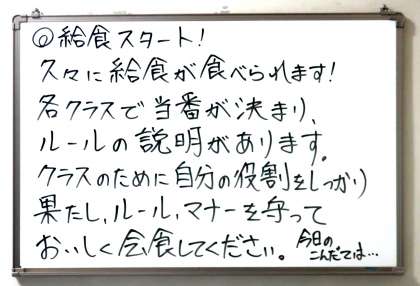 ◎給食スタート!
久々に給食が食べられます!
各クラスで当番が決まり、
ルールの説明があります。
クラスのために自分の役割をしっかり
果たし、ルール、マナーを守って
おいしく会食してください。
今日の
こんだては…